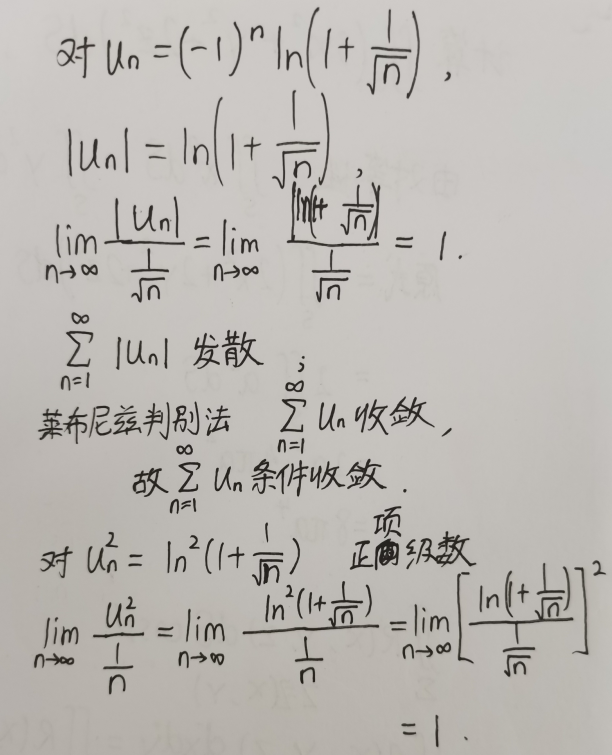 对 uₙ = (-1)ⁿ ln(1 + 1/√n) ,
|uₙ| = ln(1 + 1/√n) ,
lim_{n→∞} |uₙ| / (1/√n) = lim_{n→∞} |ln(1 + 1/√n)| / (1/√n) = 1 .
∑_{n=1}^{∞} |uₙ| 发散 ;
莱布尼兹判别法 ∑_{n=1}^{∞} uₙ 收敛 ,
故 ∑_{n=1}^{∞} uₙ 条件收敛 .
对 uₙ² = ln²(1 + 1/√n) 正项级数
lim_{n→∞} uₙ² / (1/n) = lim_{n→∞} ln²(1 + 1/√n) / (1/n) = lim_{n→∞} [ln(1 + 1/√n) / (1/√n)]²
= 1 .